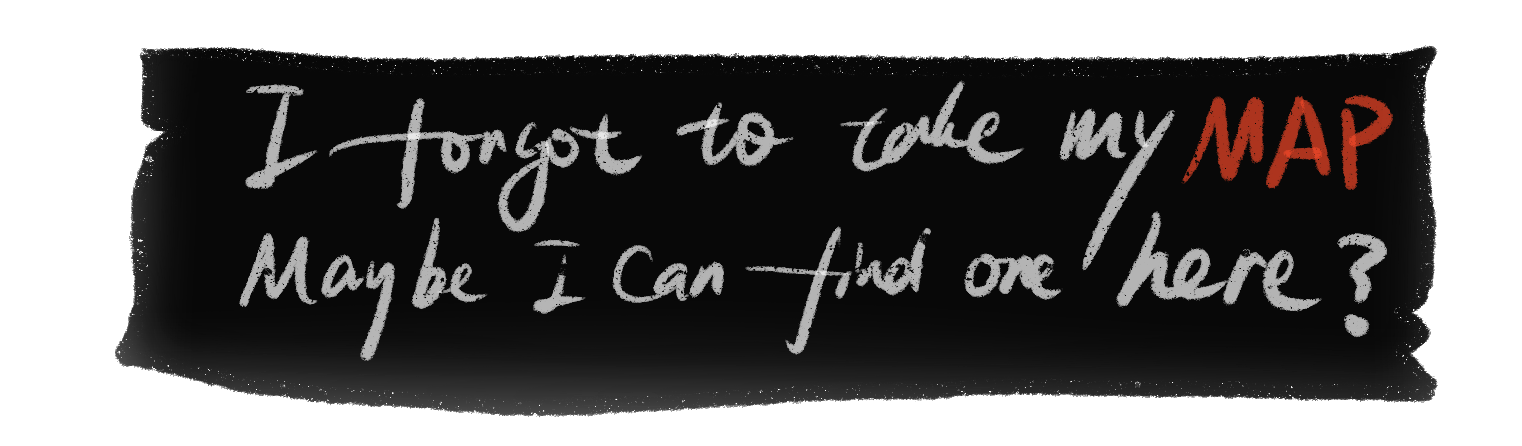 I forgot to take my MAP
Maybe I can find one here?